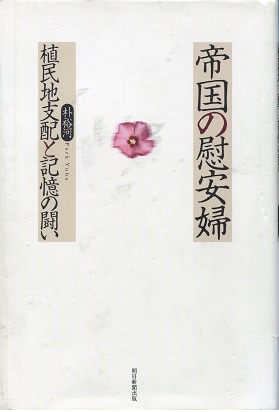 帝国の慰安婦
植民地支配と記憶の闘い
朴裕河
Park Yuha
朝日新聞出版